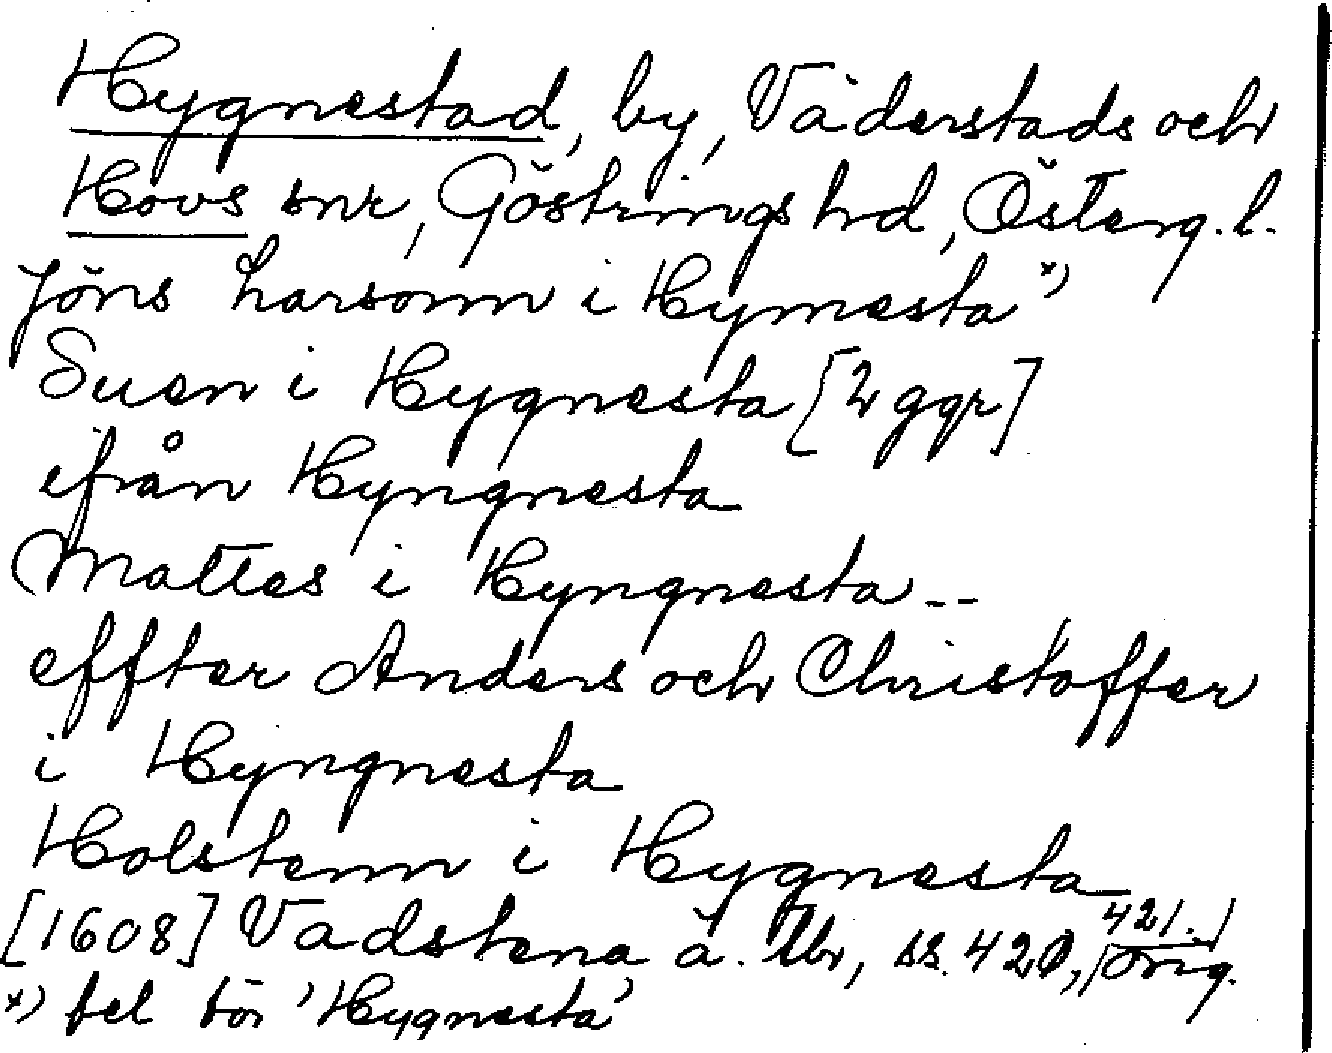 Hygnestad, by, Väderstads och
Hovs snr, Göstrings hd, Österg. l.
Jöns Larsonn i Hymesta" x)
Suen i Hygnesta [2 ggr]
ifrån Hyngnesta
Mattes i Hyngnesta --
effter Anders och Christoffer
i Hyngnesta
Holstenn i Hygnesta
[1608] Vadstena ä. tb, ss. 420, 421. orig.
x) fel för 'Hygnesta'